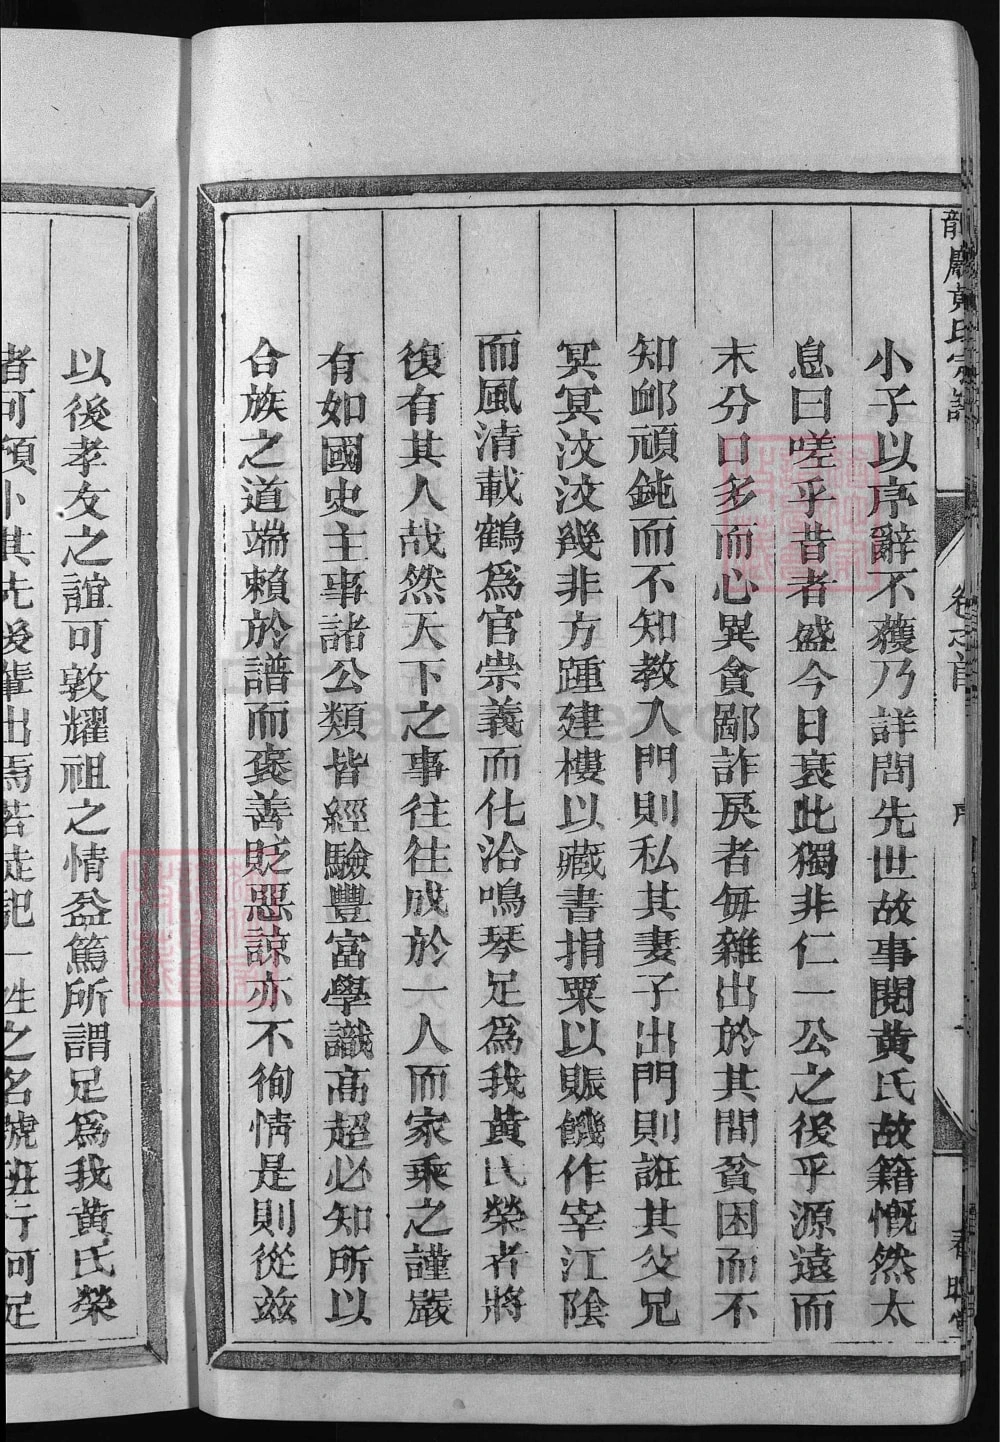 黃氏宗譜
卷之首
序
小子以序辭不獲乃詳問先世故事閱黃氏故籍慨然太
息曰嗟乎昔者盛今日衰此獨非仁一公之後乎源遠而
末分口多而心異貪鄙詐戾者每雜出於其間貧困而不
知䘏頑鈍而不知教入門則私其妻子出門則誑其父兄
冥冥汶汶幾非方踵建樓以藏書捐粟以賑饑作宰江陰
而風清載鶴為官崇義而化洽鳴琴足為我黃氏榮者將
復有其人哉然天下之事往往成於一人而家乘之謹嚴
有如國史主事諸公類皆經驗豐富學識高超必知所以
合族之道端賴於譜而褒善貶惡諒亦不徇情是則從茲
以後孝友之誼可敦耀祖之情益篤所謂足為我黃氏榮
者可預卜其先後輩出焉若徒記一姓之名號班行何足